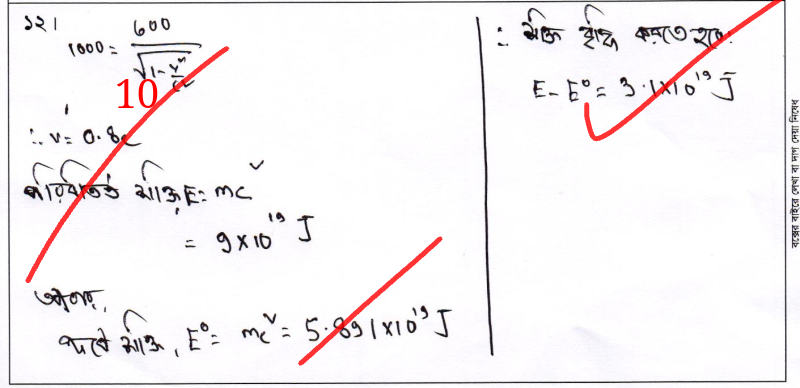 ১২।
1000 = 600 / √(1 - v²/c²)
10
∴ v = 0.8c
পরিবর্তিত শক্তি E = mc²
= 9×10¹⁹ J
আবার,
শক্তি, E⁰ = mc² = 5.891×10¹⁹ J
∴ শক্তি বৃদ্ধি করতে হবে
E - E⁰ = 3.1×10¹⁹ J
বক্সের বাইরে লেখা বা দাগ দেয়া নিষেধ